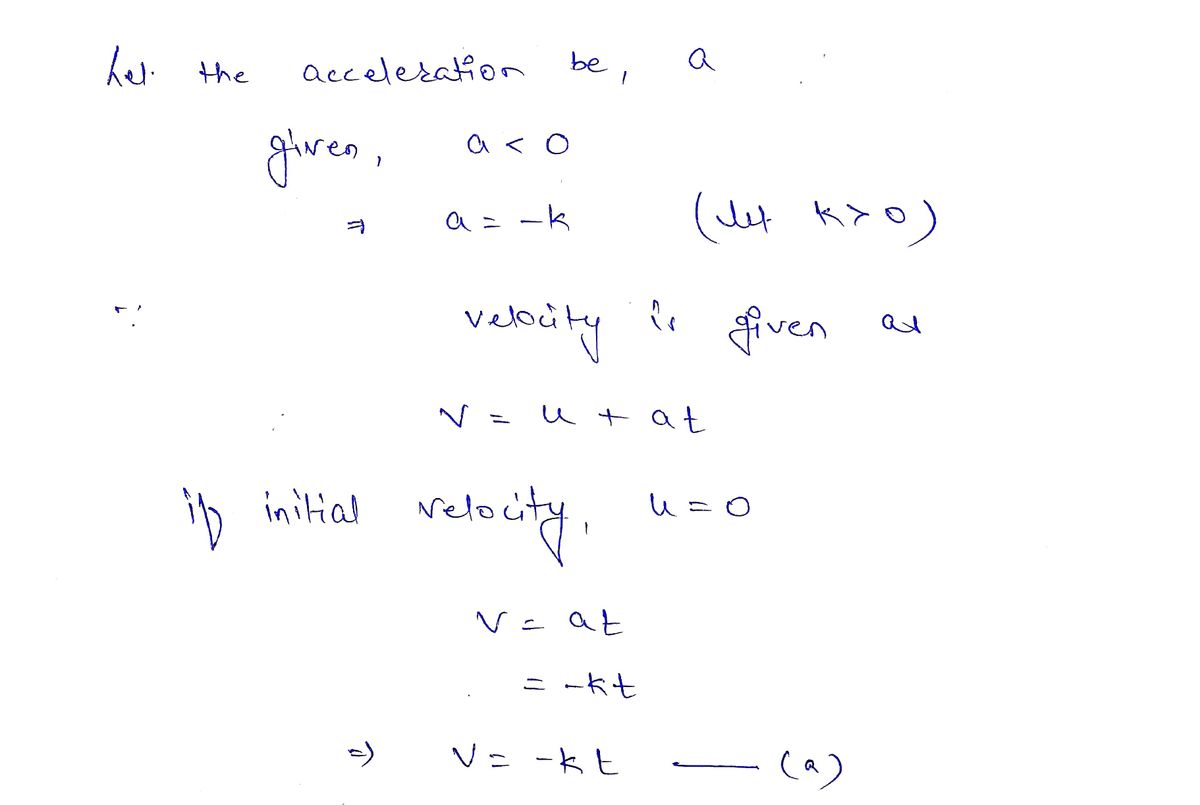 Let the acceleration be, a
given, a < 0
⇒ a = -k (let k > 0)
∵ velocity is given as
v = u + at
if initial velocity, u = 0
v = at
= -kt
⇒ v = -kt — (a)